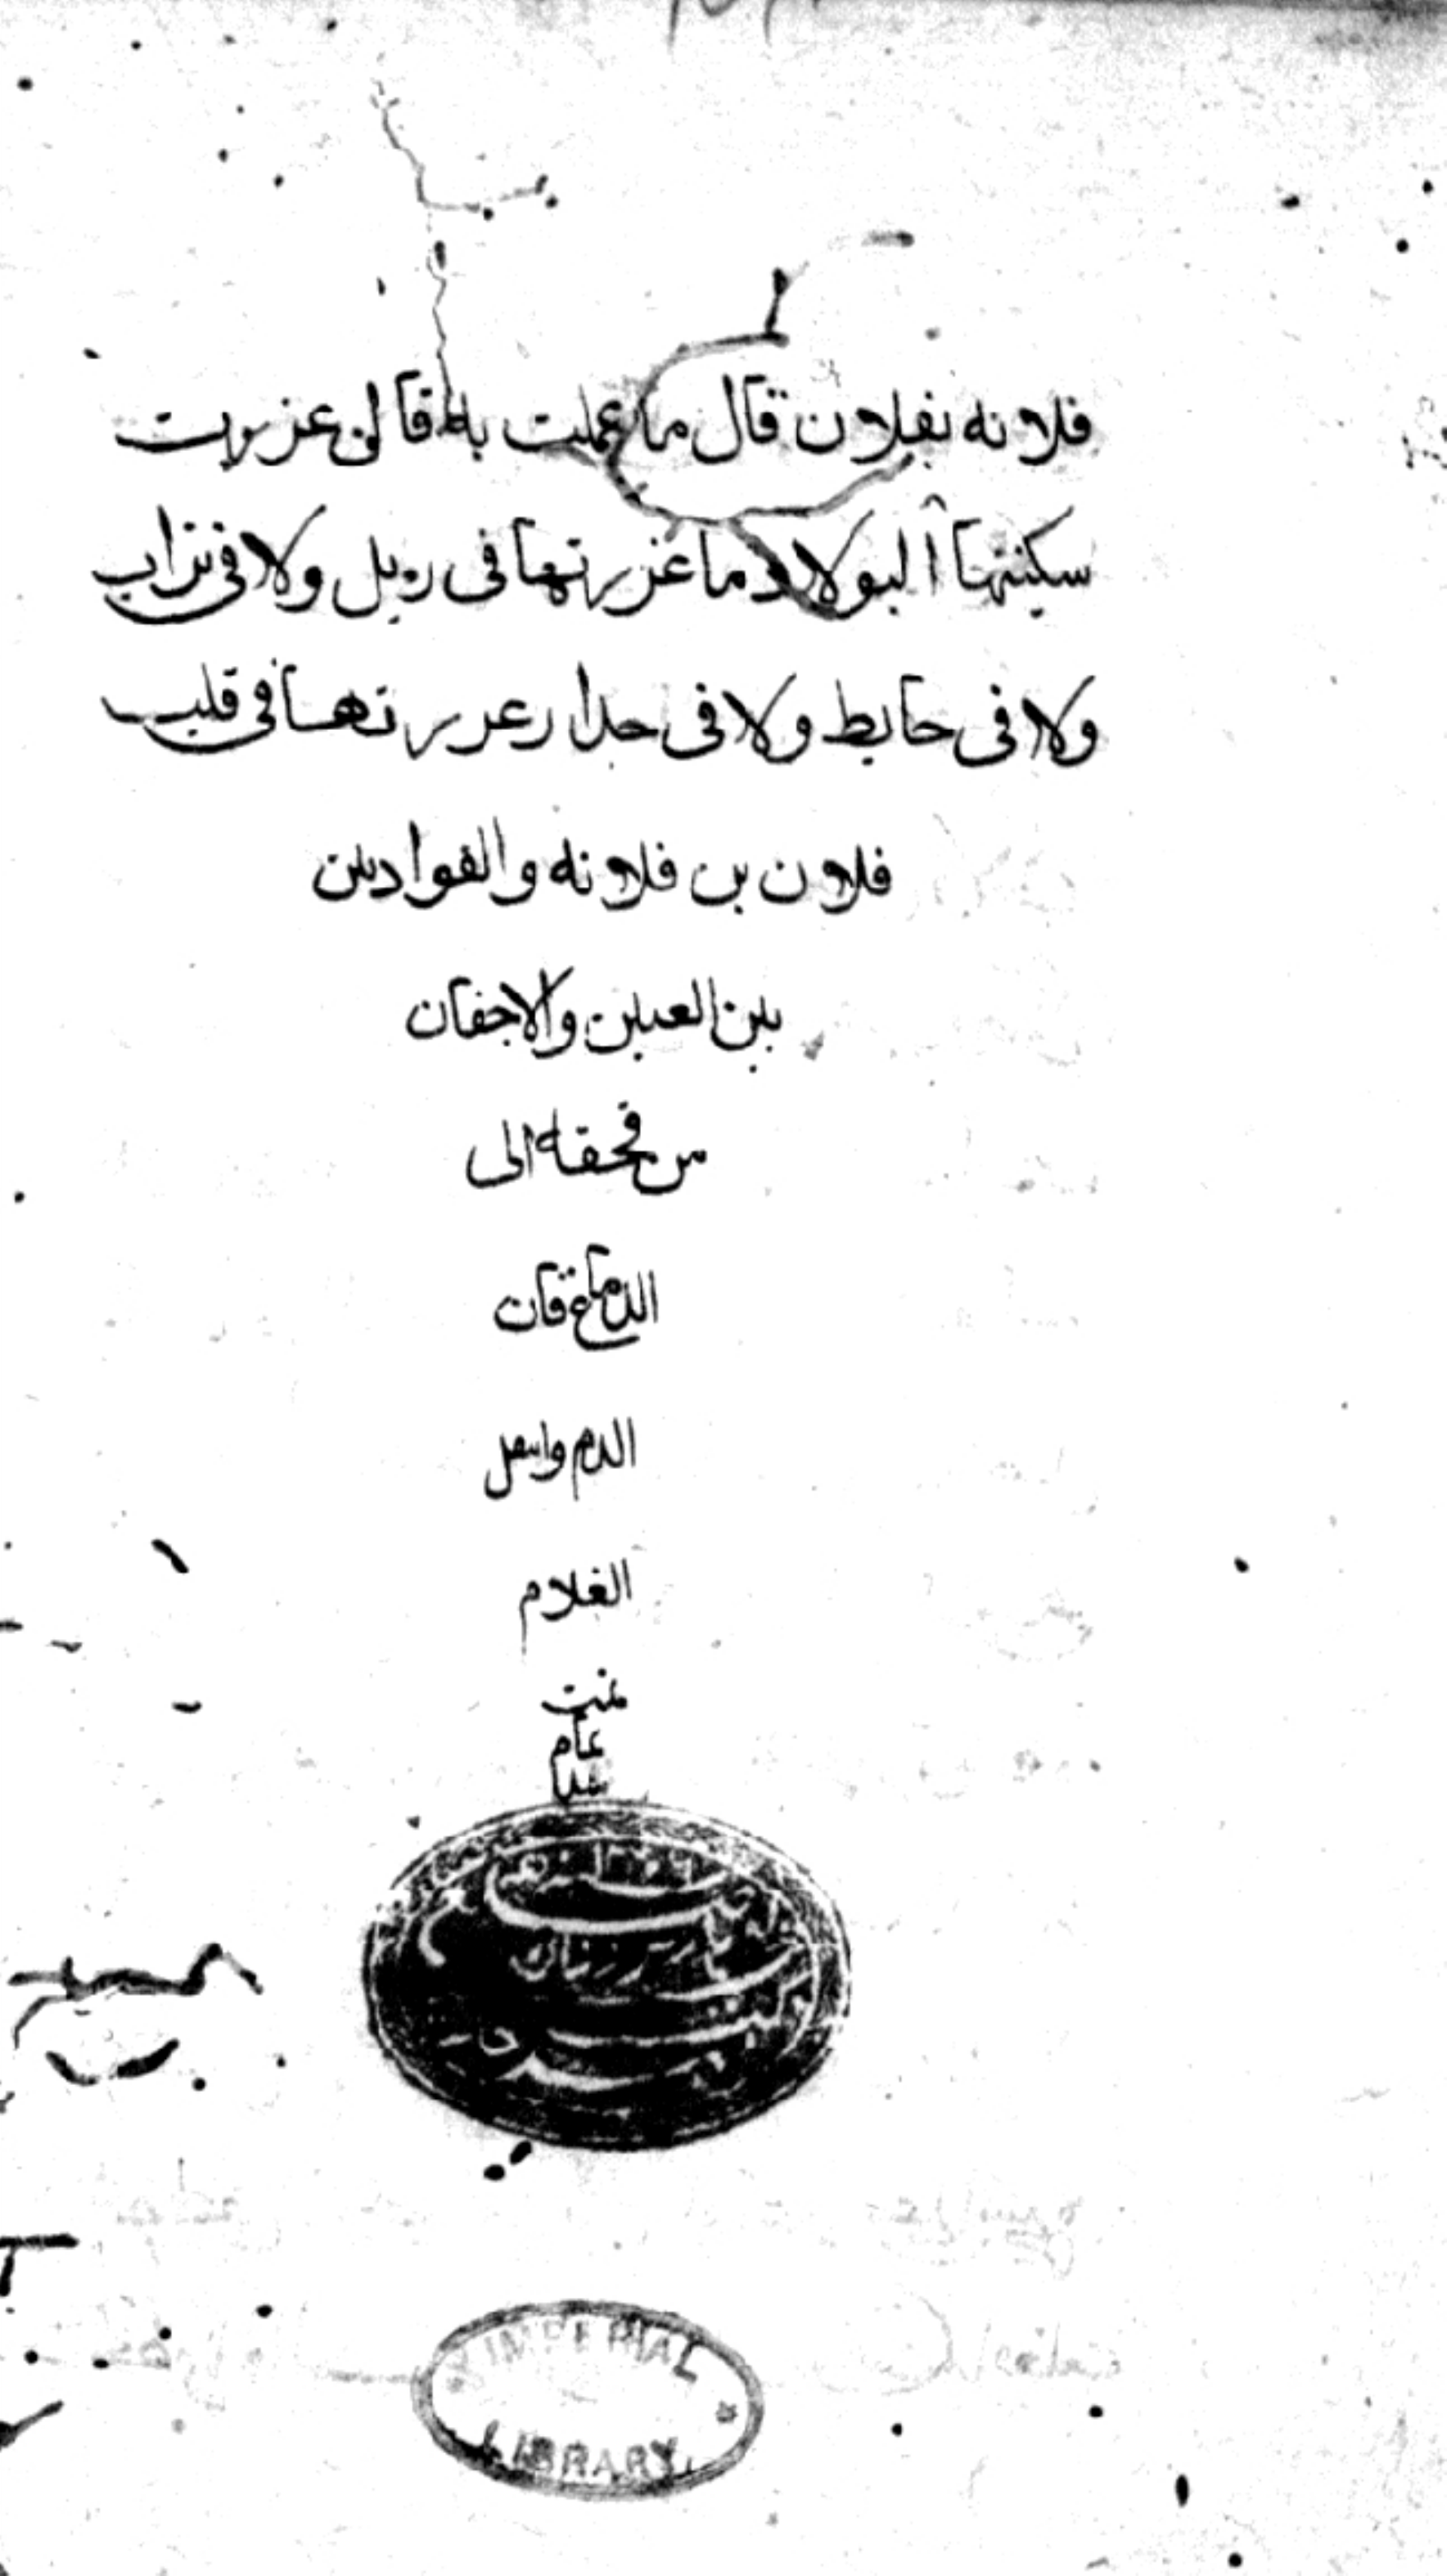 فلانه بفلان قال ما عملت به قالى عزيرت
سكينتها البولاد ما غزرتها فى زبل ولا فى تراب
ولا فى حايط ولا فى جدار غررتها فى قلب
فلان بن فلانه والفوادين
بين العينين والاجفان
من قحقه الى
الدماغ فان
الدم واسعل
الغلام
تمت
تمام
IMPERIAL
LIBRARY